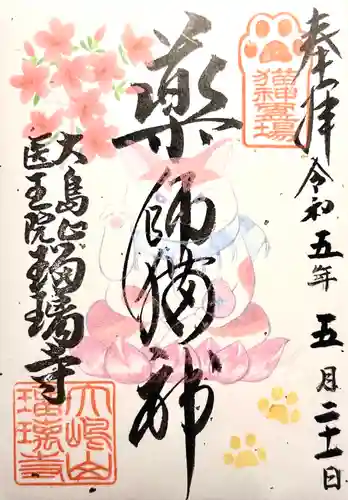 奉拝
令和五年五月二十一日
猫神霊場
薬師猫神
大島山
医王院瑠璃寺
大嶋山
瑠璃寺